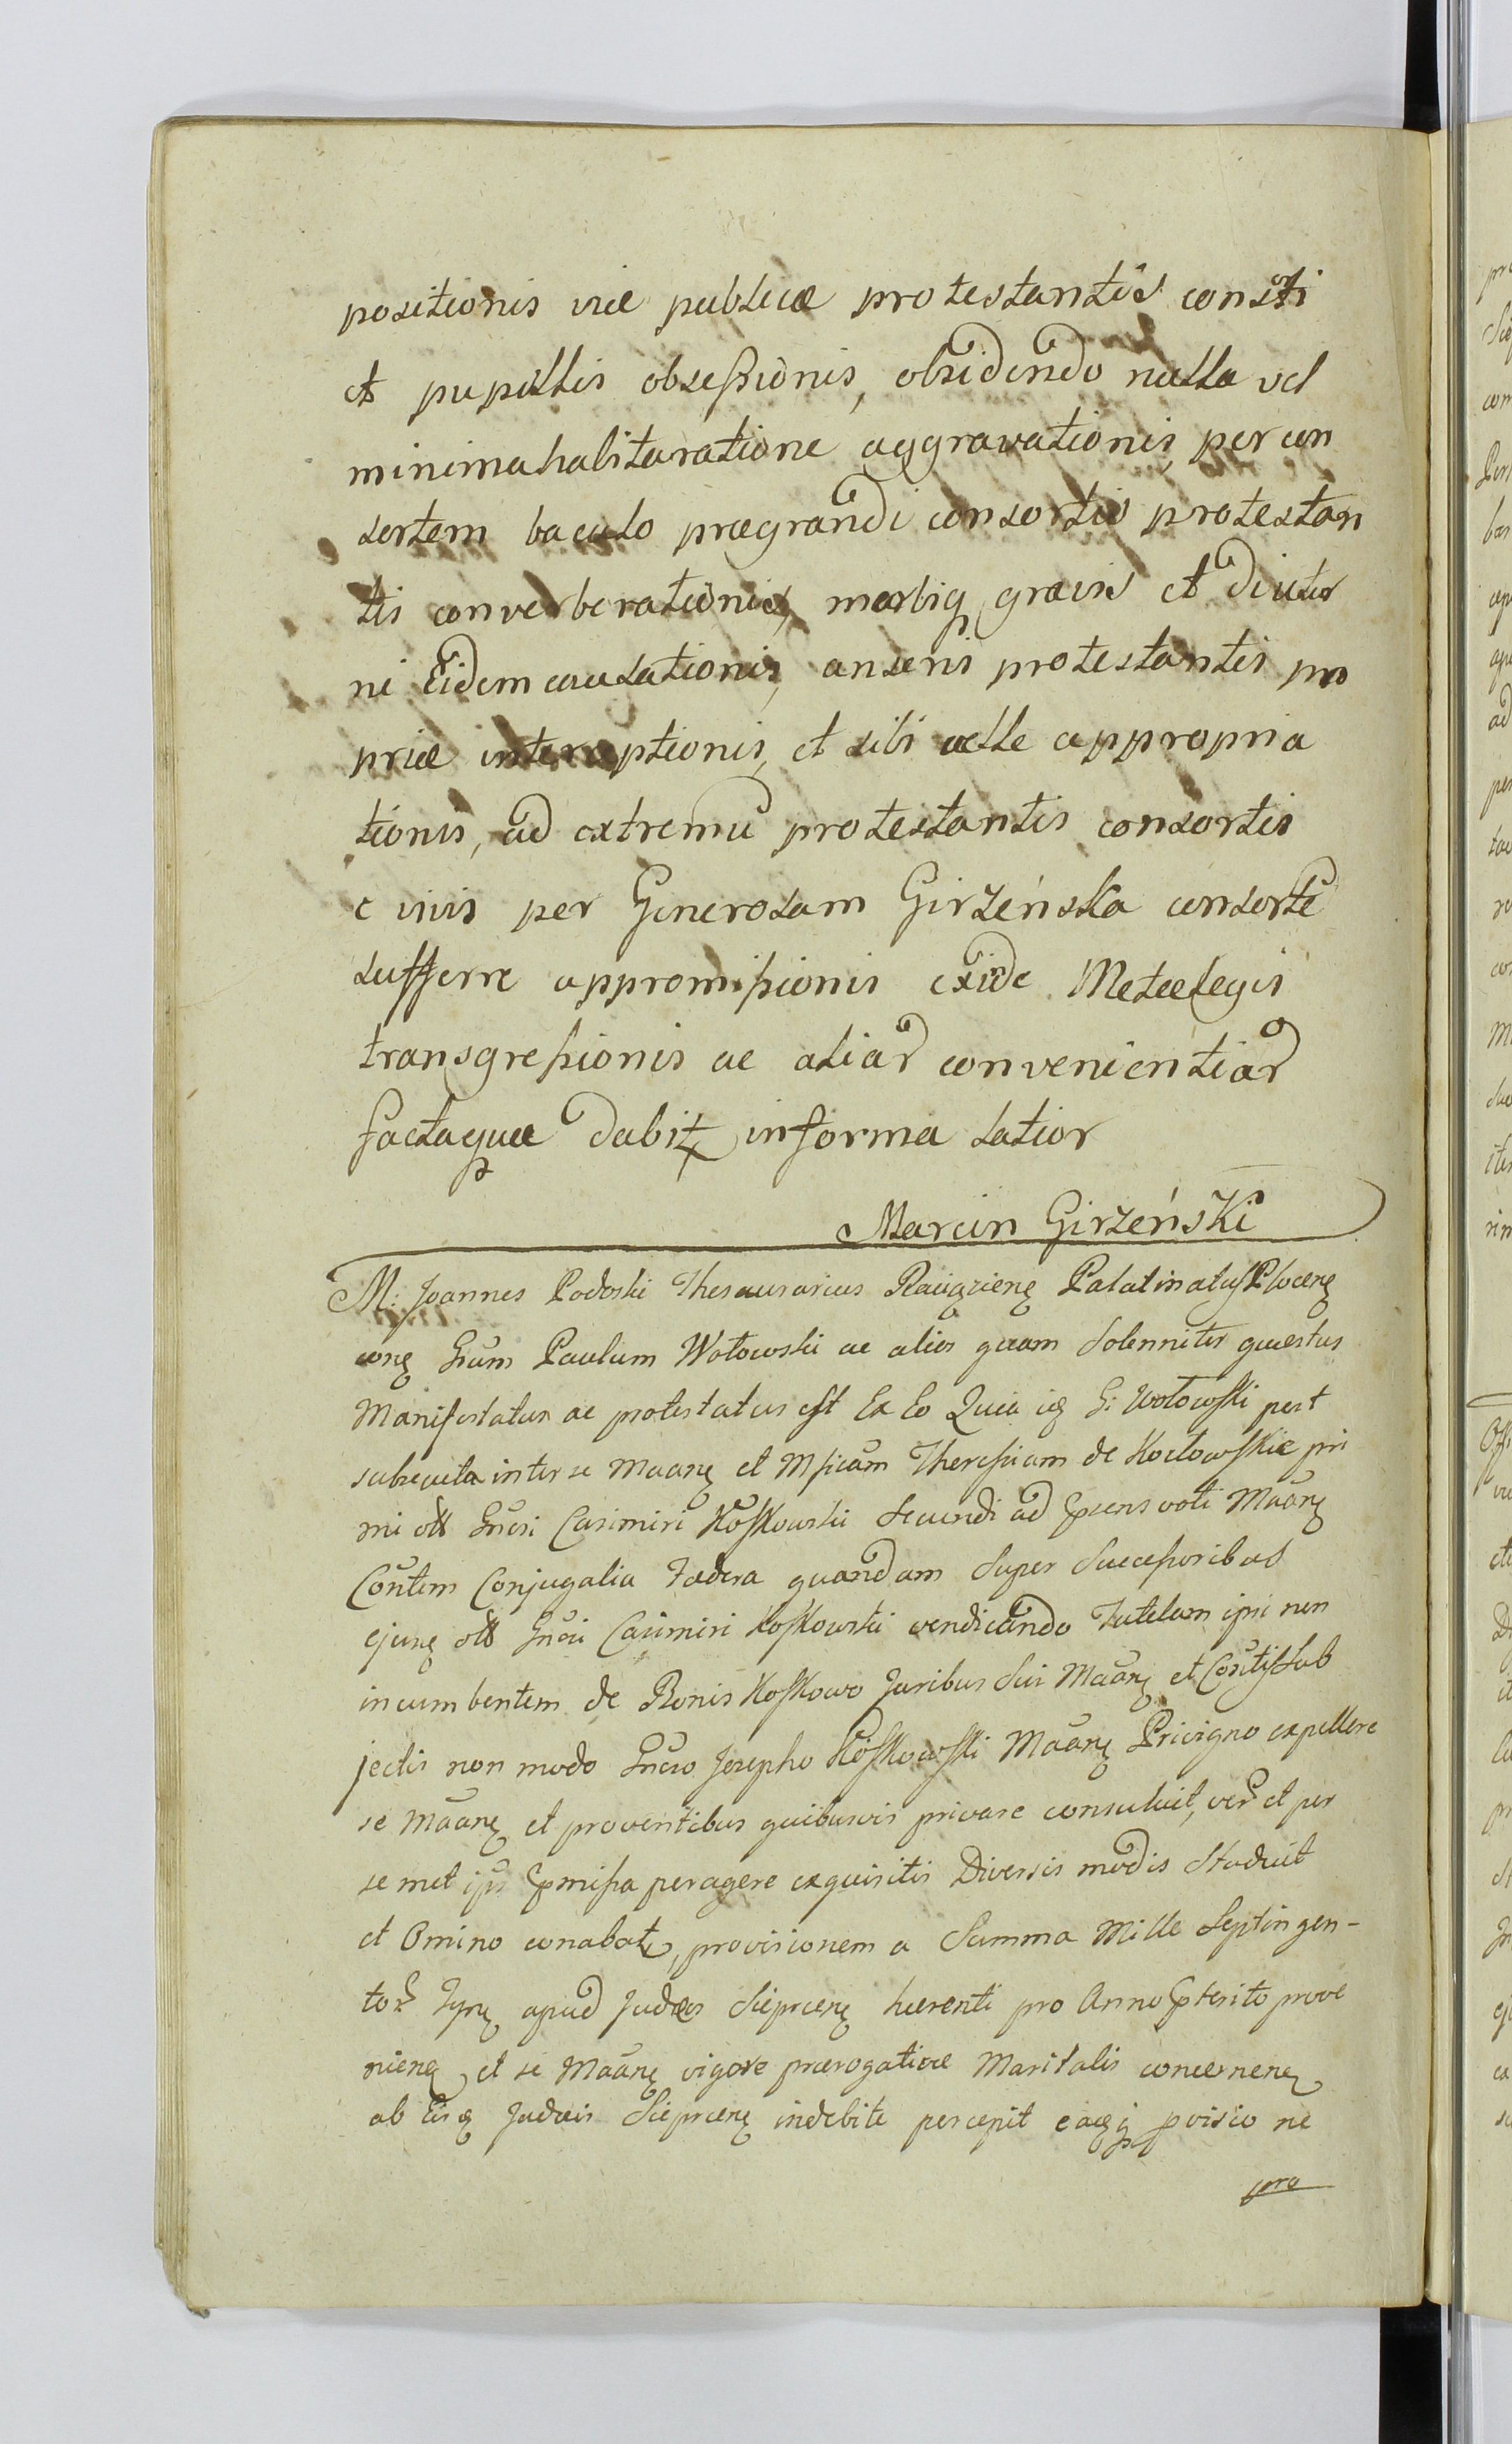 positionis viæ publicæ protestantis consti
et pupillis obseſsionis, obsidendo nulla vel
minima habita ratione aggravationis, per con
sortem baculo prægrandi consortis protestan
tis converberationis, morbiq gravis et diutur
ni Eidem causationis, anseris protestantis pro
priæ interemptionis, et sibi velle appropria
tionis, ad extremū protestantis consortis
e vivis per Generosam Girzeńska consortē
sufferre appromiſsionis exinde Metæ legis
transgreſsionis ac aliar convenientiar
factaquæ dabit in forma latior
Marcin Girzeński
M: Joannes Podoski Thesaurarius Raciązien Palatinatus Plocen
con Gsum Paulum Wołowski ac alios quam Solenniter quæstus
Manifestatus ac protestatus est Ex Eo Quia G: Wołowski post
subsecuta inter se Maan et Mficam Theresiam de Kozłowskie pri
mi Gnosi Casimiri Koskowski Secundi ad præsens voti Maan
Contem Conjugalia Fædera quandam Super Succeſsoribus
ejusq Gnosi Casimiri Koskowski vendicando Tutelam ipsi non
incumbentem de Bonis Koskowo Juribus Sui Maan et Contis Sub
jectis non modo Gnoso Josepho Koskowski Maan Privigno expellere
se Maan et proventibus quibusvis privare consuluit, ver et per
se met ips præmiſsa peragere exquisitis Diversis modis Studuit
et Omino conabat, provisionem a Summa Mille Septingen-
tor Tyn apud Judæos Sieprcen hærenti pro Anno præterito prove
nien et se Maan vigore prærogativæ Maritalis concernen
ab Eisq Judæis Sieprcen indebite percepit eaqq provisio ne
pro